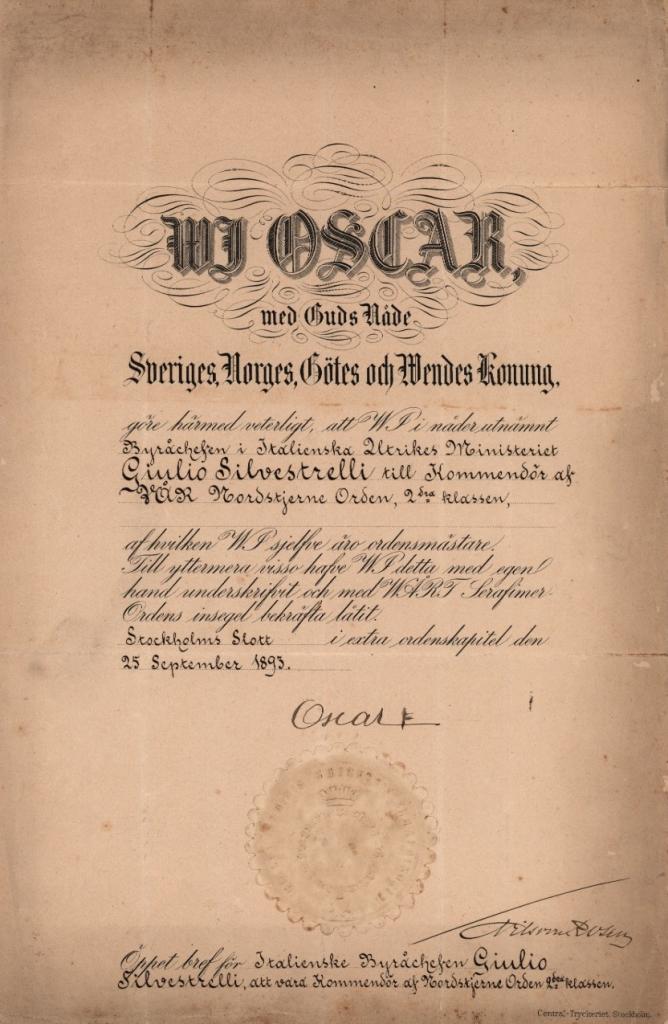 WJ OSCAR,
med Guds Nåde
Sveriges, Norges, Götes och Wendes Konung,
göre härmed veterligt, att WJ i nåder utnämnt
Byråchefen i Italienska Utrikes Ministeriet
Giulio Silvestrelli till Kommendör af
VÅR Nordstjerne Orden, 2dra klassen,
af hvilken WJ sjelfve äro ordensmästare.
Till yttermera visso hafve WJ detta med egen
hand underskrifvit och med WÅRT Serafimer-
Ordens insegel bekräfta låtit.
Stockholms Slott i extra ordenskapitel den
25 September 1893.
Oscar
Öppet bref för Italienske Byråchefen Giulio
Silvestrelli, att vara Kommendör af Nordstjerne Orden 2dra klassen.
Central-Tryckeriet, Stockholm.